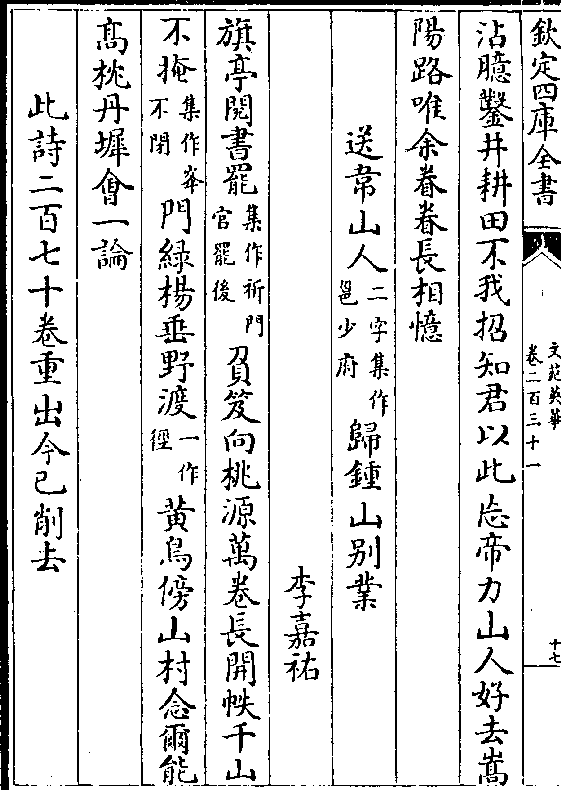 欽定四庫全書
文苑英華
卷二百三十一
十七
沾臆鑿井耕田不我招知君以此忘帝力山人好去嵩
陽路唯余眷眷長相憶
送韋山人二字集作邕少府歸鍾山别業
李嘉祐
旗亭閱書罷集作祈門官罷後負笈向桃源萬卷長開帙千山
不掩集作峯不閉門緑楊垂野渡一作徑黄鳥傍山村念爾能
髙枕丹墀會一論
此詩二百七十卷重出今已削去